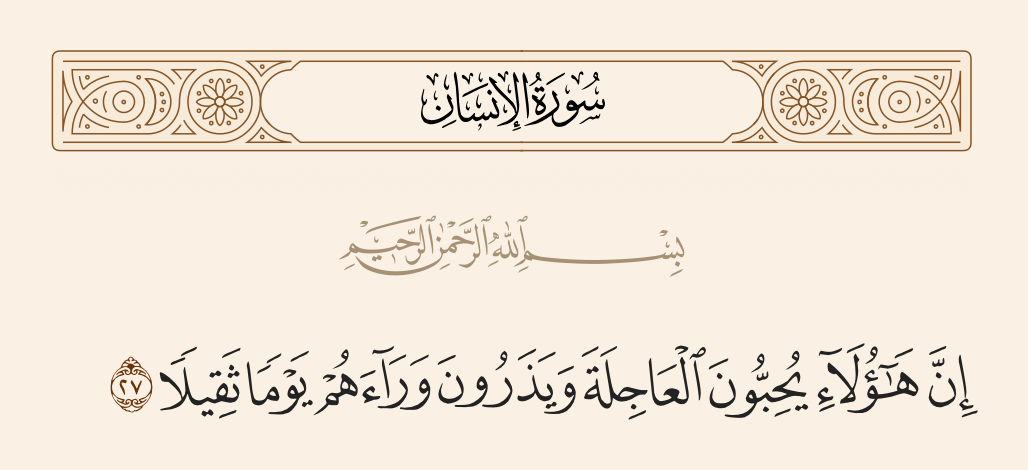 سُورَةُ الإِنسَانِ
بِسْمِ ٱللَّهِ ٱلرَّحْمَٰنِ ٱلرَّحِيمِ
إِنَّ هَٰٓؤُلَآءِ يُحِبُّونَ ٱلْعَاجِلَةَ وَيَذَرُونَ وَرَآءَهُمْ يَوْمًا ثَقِيلًا ٢٧